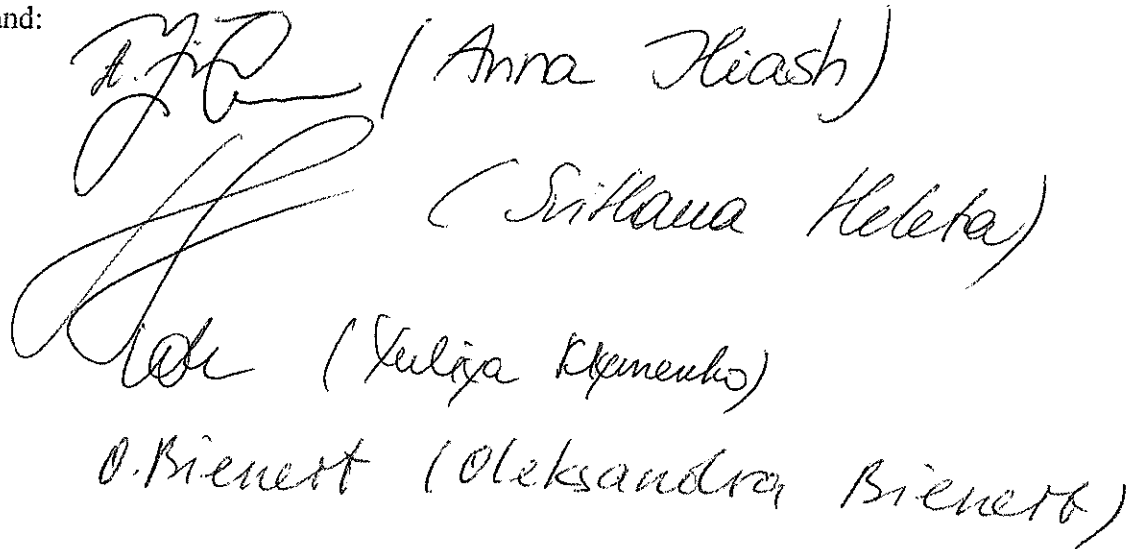 and:
(Anna Iliash)
(Svitlana Heleta)
(Yuliya Klymenko)
O.Bienert (Oleksandra Bienert)